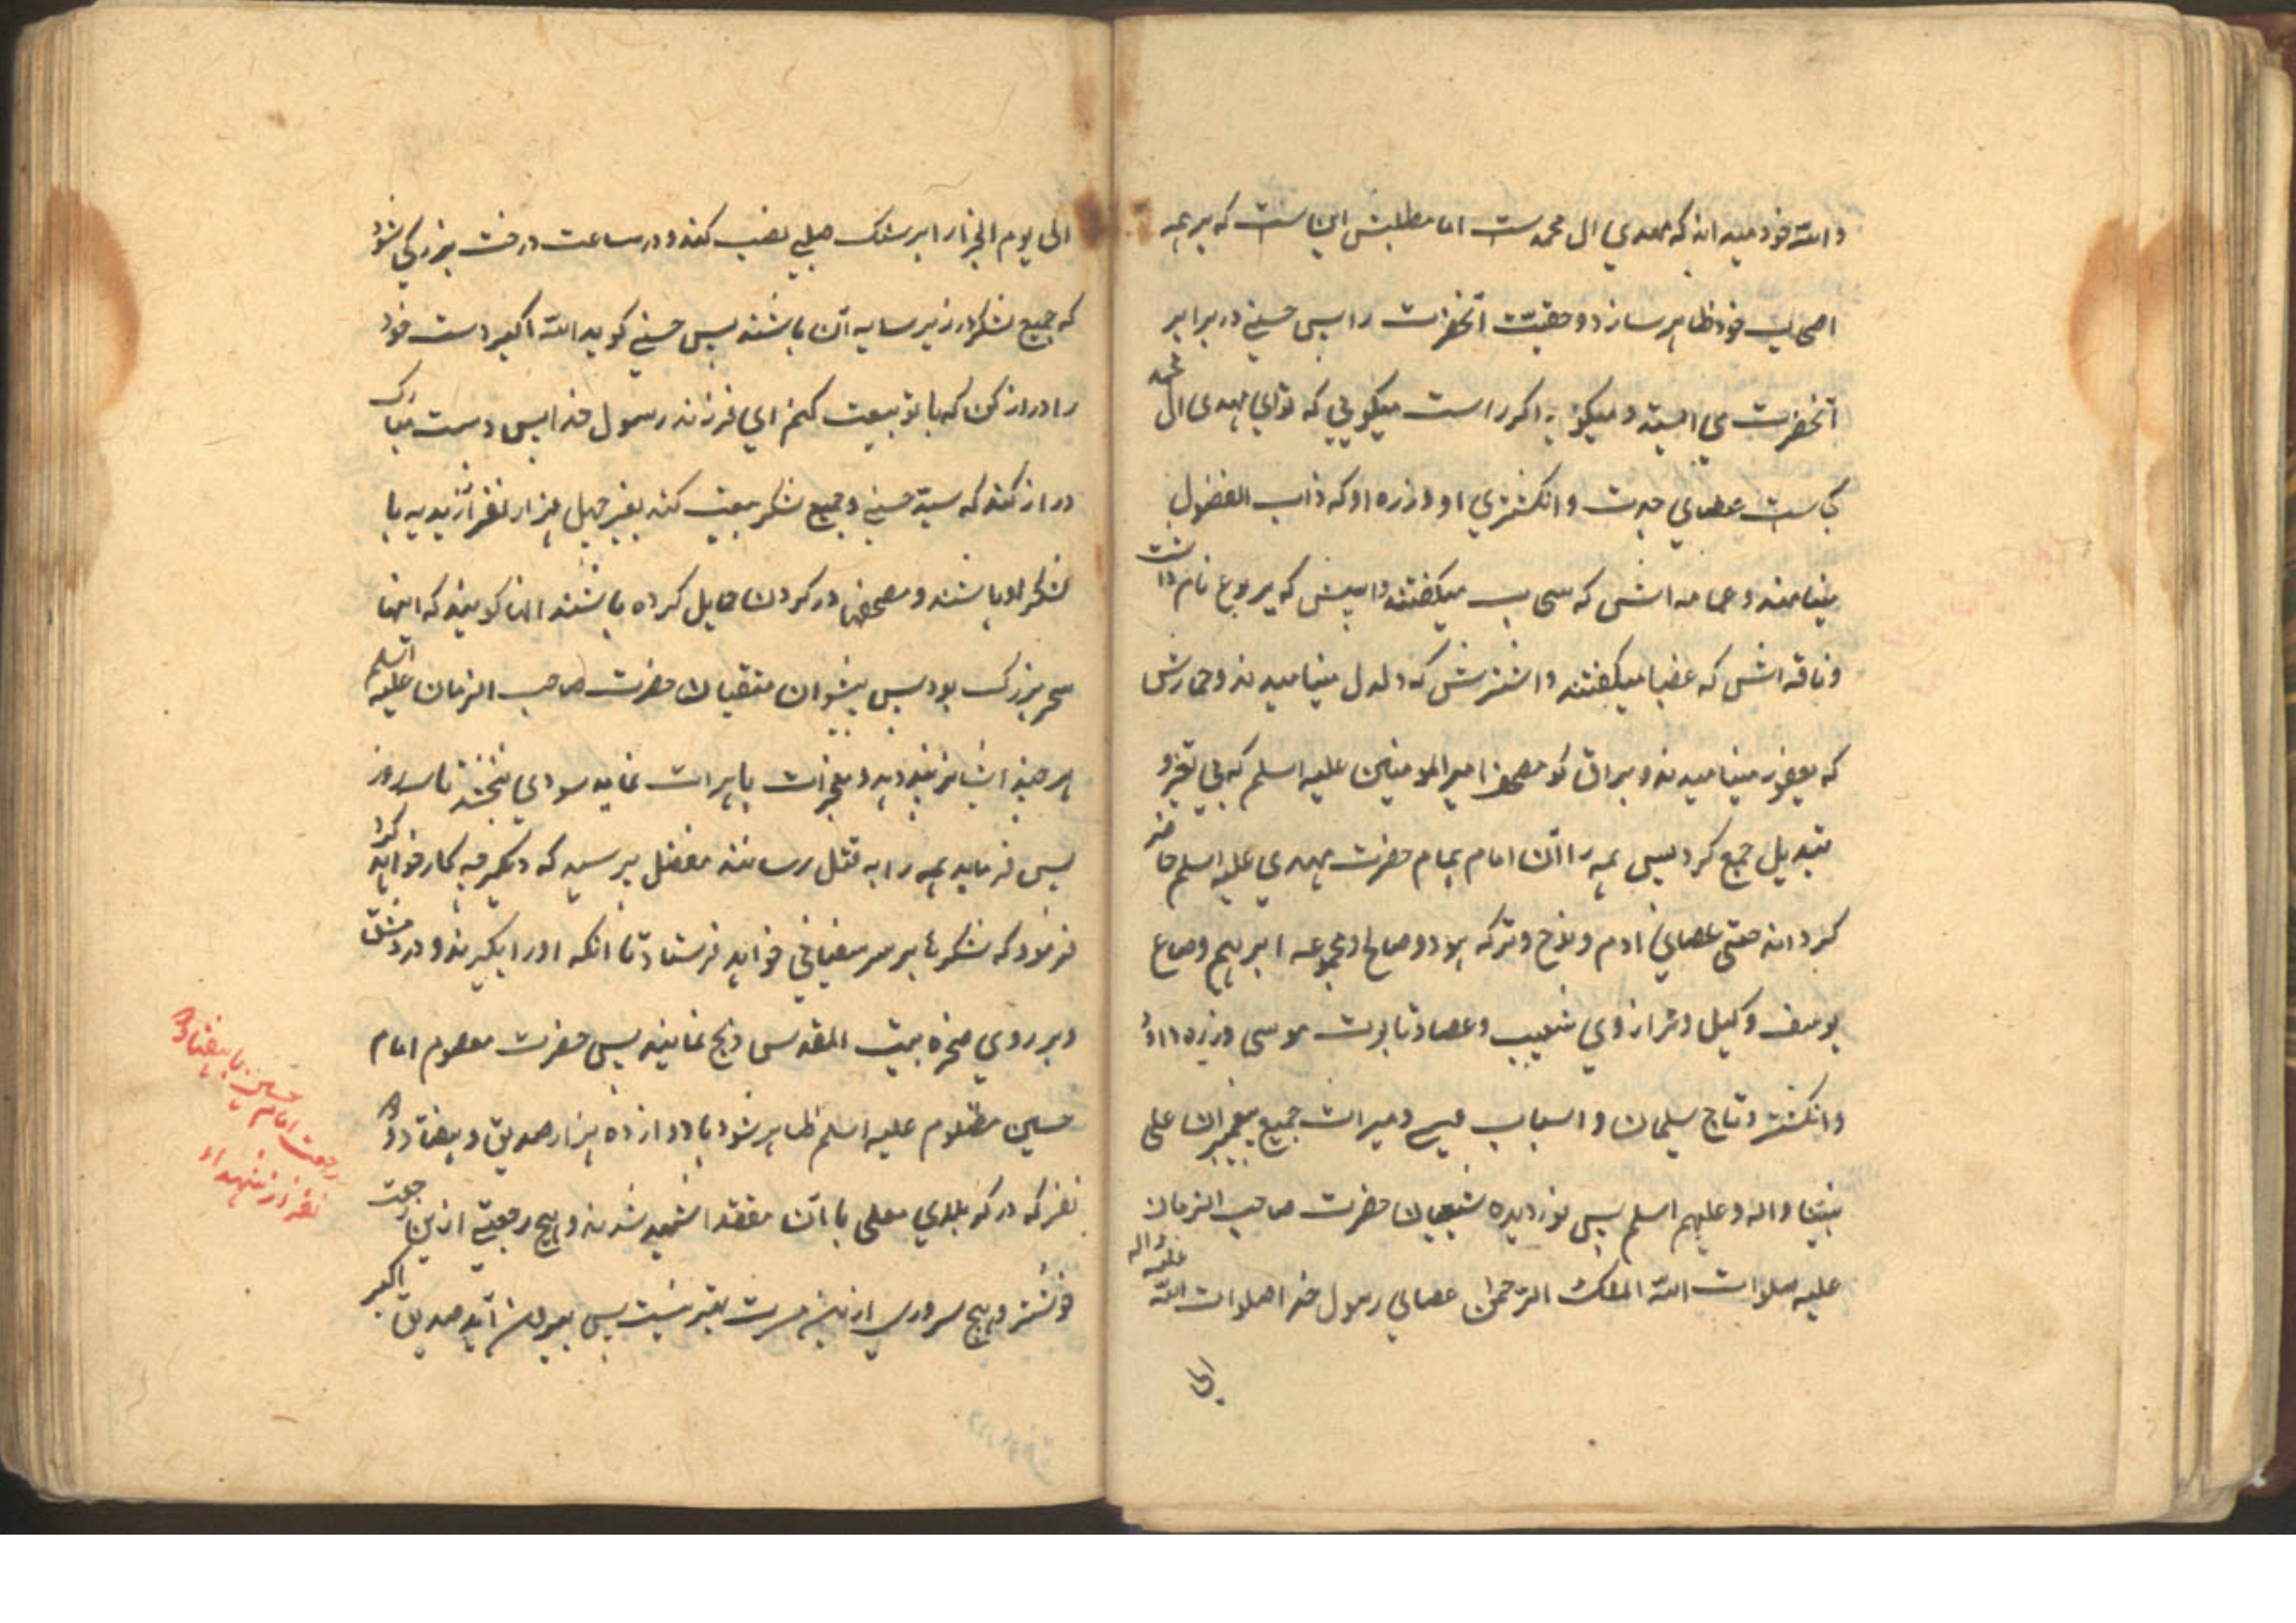 والله خود میداند که مهدی ال محمد ست اما مطلبش این است که بر همه
اصحاب خود ظاهر سازد و حقیت آنحضرت را پس حسنی در برابر
آنحضرت می ایستد و میگوید اکر راست میکویی که توای مهدی ال محمد
کجاست عصای جدت وانکشتری او و زره او که ذات الفضول
مینامند وعمامه اش که سحاب میکفتند و اسپش که یربوع نام داشت
وناقه اش که عضبا میکفتند و اشترش که دلدل مینامیدند وحمارش
که یعفور مینامیدند و براق کو مصحف امیر المومنین علیه اسلم که بی تغیر و
تبدیل جمع کرد پس همه را آن امام همام حضرت مهدی علیه اسلم حاضر
کرداند حتی عصای ادم و نوح وترکه هود و صالح و مجموعه ابرهیم وصاع
یوسف وکیل و ترازوی شعیب وعصا وتابوت موسی و زره داود
وانکشتر وتاج سلیمان و اسباب عیسی و میراث جمیع پیغمبران علی
نبینا واله وعلیهم اسلم پس نوردیده شیعیان حضرت صاحب الزمان
علیه صلوات الله الملک الرحمن عصای رسول خدا صلوات الله علیه واله
الی
الی یوم الجزا را بر سنک صلبی نصب کند ودر ساعت درخت بزرکی شود
که جمیع لشکر در زیر سایه آن باشند پس حسنی کوید الله اکبر دست خود
را دراز کن که با تو بیعت کنم ای فرزند رسول خدا پس دست مبارک
دراز کند که سید حسنی و جمیع لشکر بیعت کنند بغیر چهل هزار نفر از زیدیه با
لشکر او باشند و مصحفها در کردن حمایل کرده باشند انها کویند که اینها
سحر بزرک بود پس پیشوای متقیان حضرت صاحب الزمان علیه اسلم
هر چند ایشانرا پند دهد و معجزات باهرات نماید سودی نبخشد تا سه روز
پس فرماید همه را به قتل رسانند مفضل پرسید که دیکر چه کار خواهد کرد
فرمود که لشکرها بر سر سفیانی خواهد فرستاد تا انکه اورا بکیرند و در دمشق
وبر روی صخره بیت المقدس ذبح نمایند پس حضرت معصوم امام
حسین مظلوم علیه اسلم ظاهر شود با دوازده هزار صدیق و هفتاد دو
نفر که در کربلای معلی با آن مقتدا شهید شدند و هیچ رجعتی ازین رجعت
خوشتر و هیچ سروری ازین مسرت بهتر نیست پس بیرون آید صدیق اکبر
رجعت امام حسین با هفتاد دو
نفر از شهداء